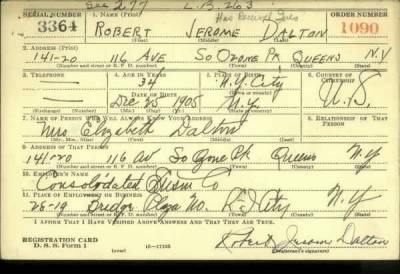 See 277 L.B. 263
SERIAL NUMBER 1. NAME (Print) ORDER NUMBER
3364 ROBERT JEROME DALTON 1090
(First) (Middle) (Last)
2. ADDRESS (Print)
141-20 116 AVE SO OZONE PK QUEENS N.Y
(Number and street or R. F. D. number) (Town) (County) (State)
3. TELEPHONE 4. AGE IN YEARS 5. PLACE OF BIRTH 6. COUNTRY OF CITIZENSHIP
— 34 N.Y. City
DATE OF BIRTH (Town or county) U.S.
— Dec 25 1905 N.Y.
(Exchange) (Number) (Mo.) (Day) (Yr.) (State or country)
7. NAME OF PERSON WHO WILL ALWAYS KNOW YOUR ADDRESS 8. RELATIONSHIP OF THAT PERSON
Mrs. Elizabeth Dalton
(Mr., Mrs., Miss) (First) (Middle) (Last)
9. ADDRESS OF THAT PERSON
141-20 116 Av So Ozone Pk Queens N.Y
(Number and street or R. F. D. number) (Town) (County) (State)
10. EMPLOYER'S NAME
Consolidated Co
11. PLACE OF EMPLOYMENT OR BUSINESS
25-19 Bridge Plaza No. City N.Y
(Number and street or R. F. D. number) (Town) (County) (State)
I AFFIRM THAT I HAVE VERIFIED ABOVE ANSWERS AND THAT THEY ARE TRUE.
REGISTRATION CARD
D. S. S. Form 1 (over) 16—17105 Robert Jerome Dalton
(Registrant's signature)